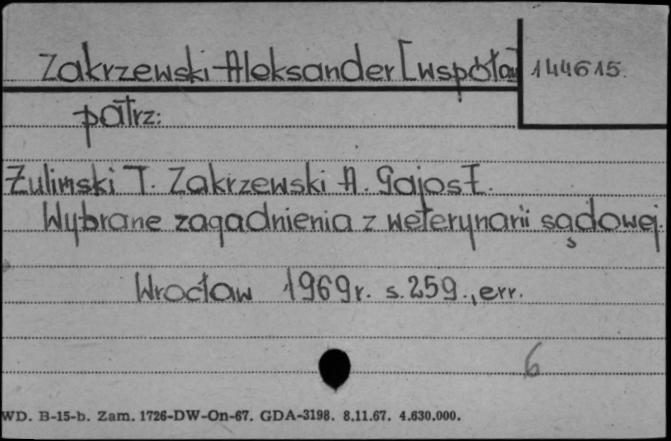 Zakrzewski Aleksander [współau 144615.
patrz:
Żuliński T. Zakrzewski A. Gajos E.
Wybrane zagadnienia z weterynarii sądowej.
Wrocław 1969 r. s. 259., err.
6
WD. B-15-b. Zam. 1726-DW-On-67. GDA-3198. 8.11.67. 4.630.000.